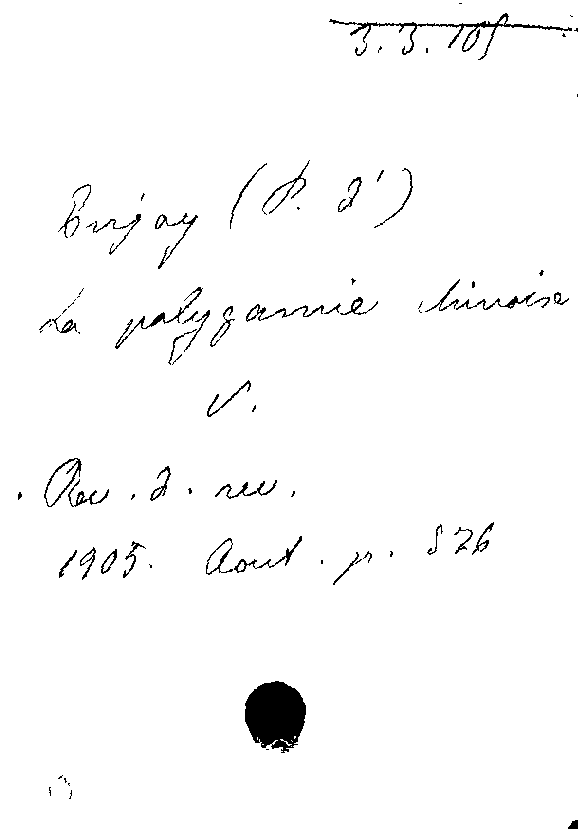 3.3.105
Enjoy (P. d')
La polygamie chinoise
V.
. Rev. d. rev.
1905. Aout. p. 526